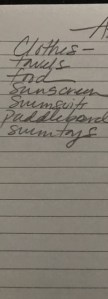 A
Clothes -
Towels
Food
Sunscreen
Swimsuits
Paddleboard
Swim toys